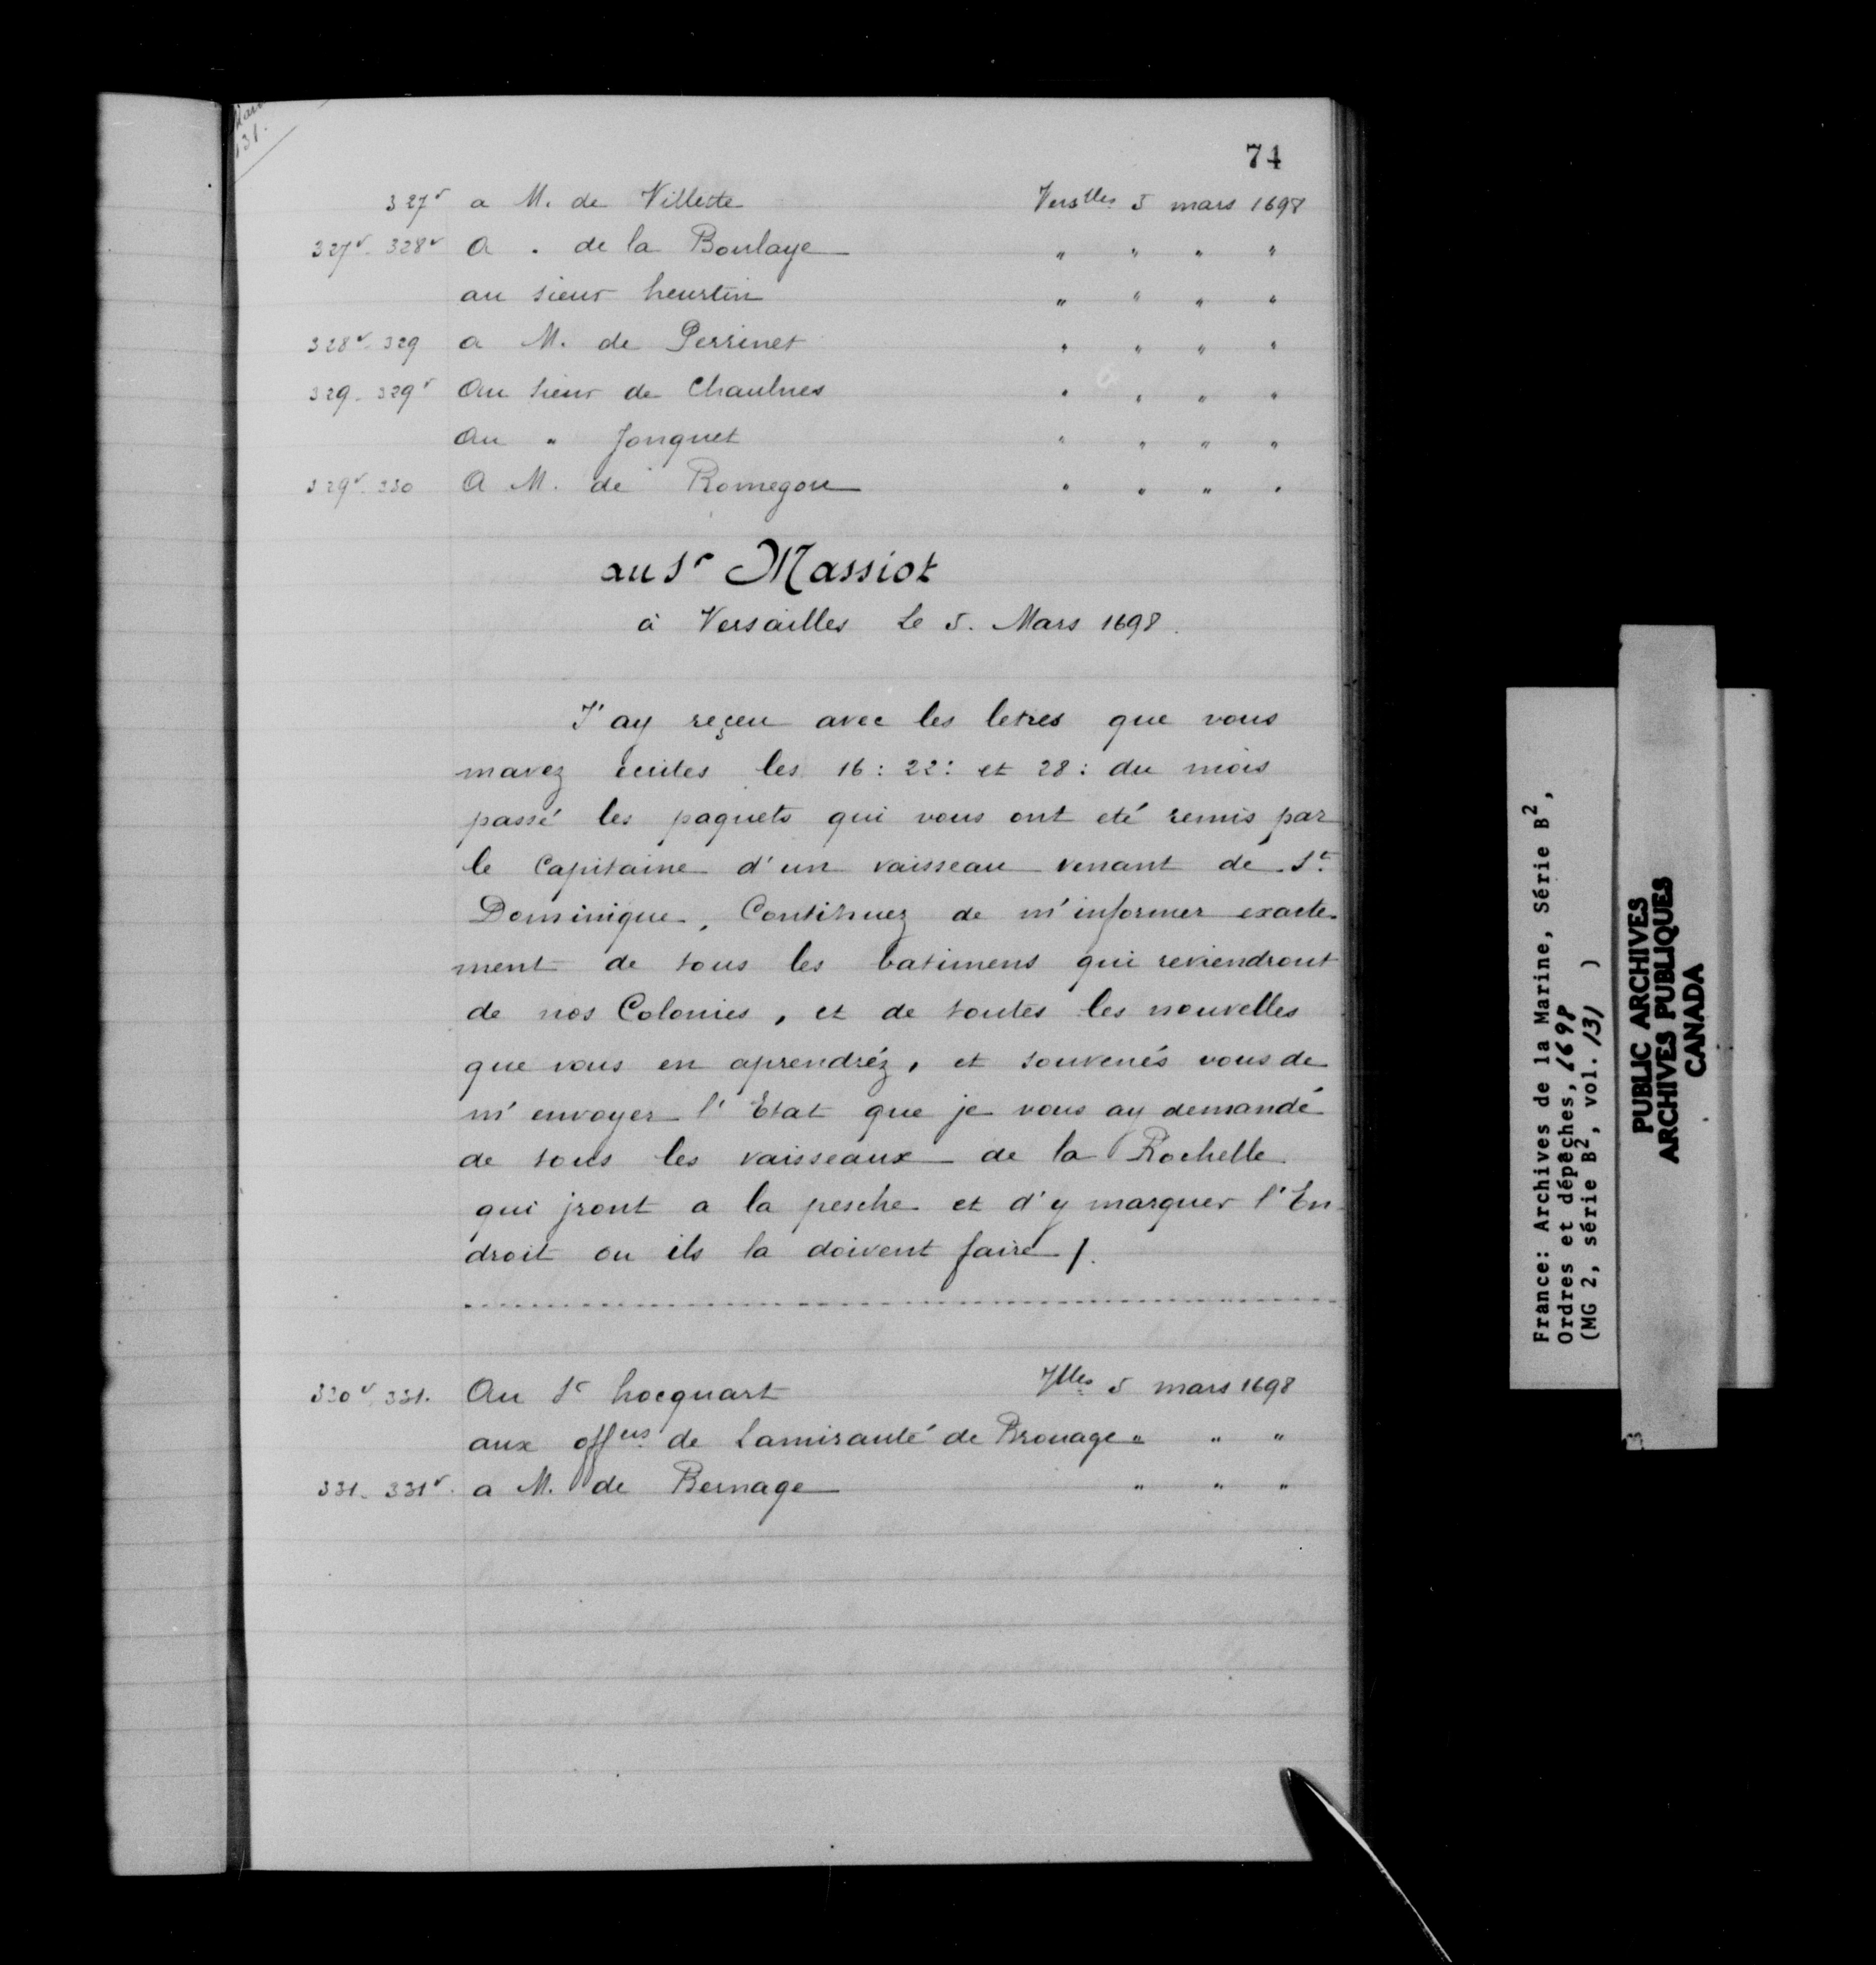 131.
74
327v a M. de Villette Verslles 5 mars 1698
327v. 328v A . de la Boulaye " " " "
au sieur heurtin " " " "
328v. 329 a M. de Perrinet " " " "
329. 329v Au sieur de Chaulnes " " " "
Au " Jonquet " " " "
329v. 330 A M. de Romegou " " " "
au Sr Massiot
à Versailles Le 5. Mars 1698.
J'ay reçeu avec les letres que vous
mavez ecrites les 16: 22: et 28: du mois
passé les paquets qui vous ont eté remis par
le Capitaine d'un vaisseau venant de St.
Dominique, Continuez de m'informer exacte-
ment de tous les batimens qui reviendront
de nos Colonies, et de toutes les nouvelles
que vous en aprendréz, et souvenés vous de
m'envoyer l'Etat que je vous ay demandé
de tous les vaisseaux de la Rochelle
qui jront a la pesche et d'y marquer l'En-
droit ou ils la doivent faire /.
330v. 331. Au Sr hocquart Vlles 5 mars 1698
aux offers de Lamirauté de Brouage " " "
331. 331v. a M. de Bernage " " "
France: Archives de la Marine, Série B2,
Ordres et dépêches, 1698
(MG 2, série B2, vol. 131 )
PUBLIC ARCHIVES
ARCHIVES PUBLIQUES
CANADA